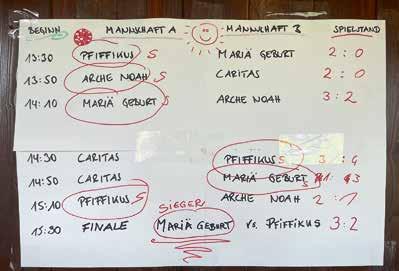 BEGINN MANNSCHAFT A MANNSCHAFT B SPIELSTAND
13:30 PFIFFIKUS S MARIÄ GEBURT 2:0
13:50 ARCHE NOAH S CARITAS 2:0
14:10 MARIÄ GEBURT S ARCHE NOAH 3:2
14:30 CARITAS PFIFFIKUS S 3:
14:50 CARITAS MARIÄ GEBURT S :3
15:10 PFIFFIKUS S ARCHE NOAH 2:1
SIEGER
15:30 FINALE MARIÄ GEBURT vs. PFIFFIKUS 3:2